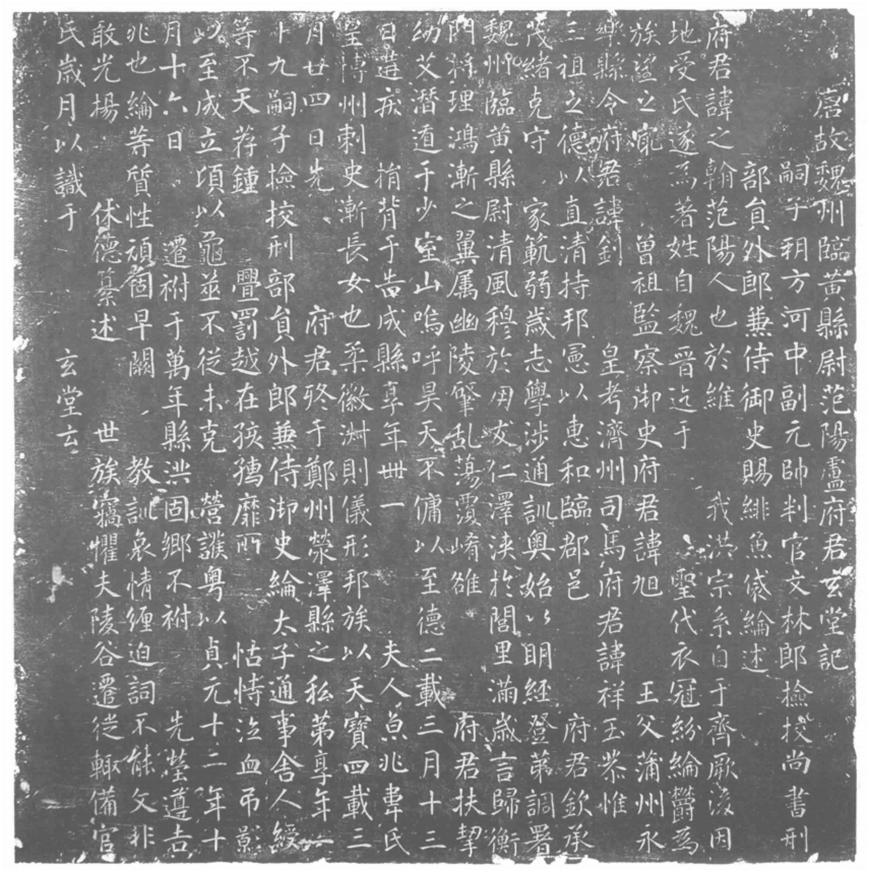 唐故魏州臨黃縣尉范陽盧府君玄堂記
嗣子朔方河中副元帥判官文林郎撿挍尚書刑
部員外郎蒹侍御史賜緋魚袋綸述
府君諱之翰范陽人也於維 我洪宗系自于齊厥後因
地受氏遂為著姓自魏晉迄于 聖代衣冠紛綸欝為
族望之冠 曾祖監察御史府君諱旭 王父蒲州永
樂縣令府君諱釗 皇考濟州司馬府君諱祥玉恭惟
三祖之德以直清持邦憲以惠和臨郡邑 府君欽承
茂緒克守 家範弱歲志學涉通訓奧始以明經登第調署
魏州臨黃縣尉清風穆於朋友仁澤浹於閭里滿歲言歸衡
門將理鴻漸之翼属幽陵肇乱蕩覆崤雒 府君扶挈
幼艾潛遁于少室山嗚呼昊天不傭以至德二載三月十三
日遘疾 捐背于告成縣享年卌一 夫人京兆韋氏
皇博州刺史漸長女也柔徽淑則儀形邦族以天寶四載三
月廿四日先 府君終于鄭州滎澤縣之私第享年一
十九嗣子撿挍刑部員外郎蒹侍御史綸太子通事舍人綬
等不天荐鍾 舋罰越在孩孺靡所 怙恃泣血弔影
以至成立頃以龜筮不從未克 營護粵以貞元十二年十
月十六日 遷祔于萬年縣洪固鄉不祔 先塋遵吉
兆也綸等質性頑固早闕 教訓哀情纏迫詞不能文非
敢光揚 休德纂述 世族竊懼夫陵谷遷徙輙備官
氏歲月以識于 玄堂云